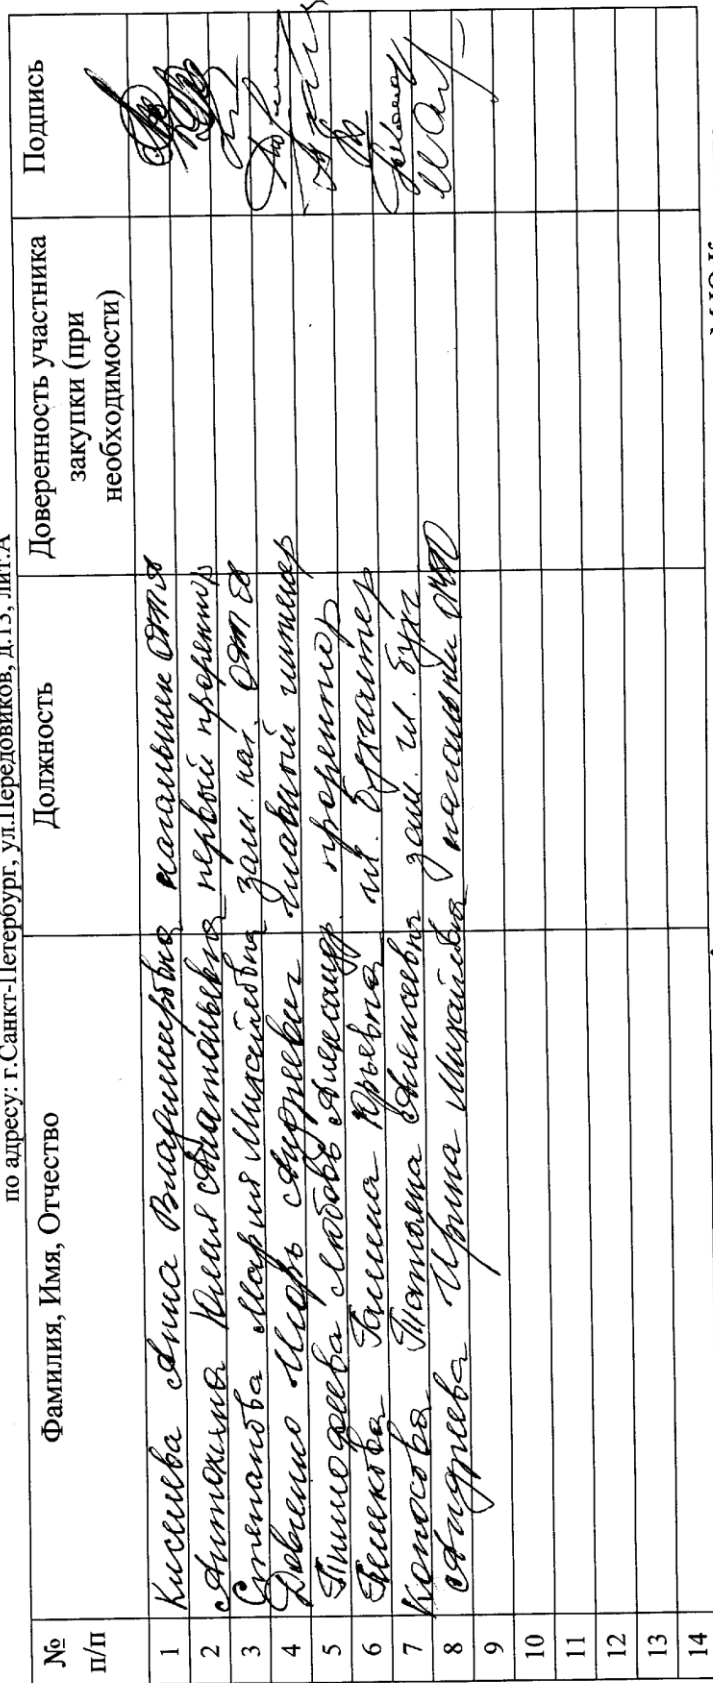 по адресу: г.Санкт-Петербург, ул.Передовиков, д.13, лит.А
№ п/п Фамилия, Имя, Отчество Должность Доверенность участника закупки (при необходимости) Подпись
1 Киселева Анна Владимировна начальник
2 Анатольевна первый проректор
3 Степанова Мария Михайловна зам. нач.
4 Игорь Андреевич главный инженер
5 Тимофеева Любовь Александр. проректор
6 Галина Юрьевна гл. бухгалтер
7 Колосова Татьяна Алексеевна зам. гл. бухг
8 Андреева Ирина Михайловна
9
10
11
12
13
14